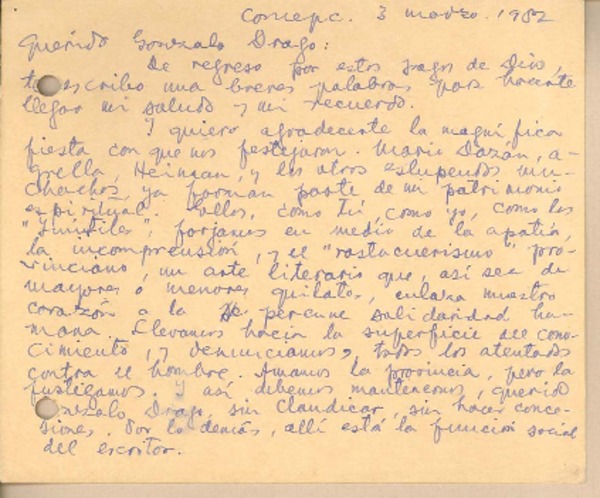 Concepc. 3 marzo. 1982
Querido Gonzalo Drago:
De regreso por estos pagos de Dios,
te escribo unas breves palabras para hacerte
llegar mi saludo y mi recuerdo.
Y quiero agradecerte la magnífica
fiesta con que nos festejaron. Mario Dazan, A-
grella, Heiman, y los otros estupendos mu-
chachos, ya forman parte de mi patrimonio
espiritual. Ellos, como tú, como yo, como los
"Inútiles", forjamos en medio de la apatía,
la incomprensión, y el "rastacuerismo" pro-
vinciano, un arte literario que, así sea de
mayores o menores quilates, enlaza nuestro
corazón a la perenne solidaridad hu-
mana. Elevamos hacia la superficie del cono-
cimiento, y denunciamos, todos los atentados
contra el hombre. Amamos la provincia, pero la
fustigamos. Y así debemos mantenernos, querido
Gonzalo Drago, sin claudicar, sin hacer conce-
siones. Por lo demás, allí está la función social
del escritor.